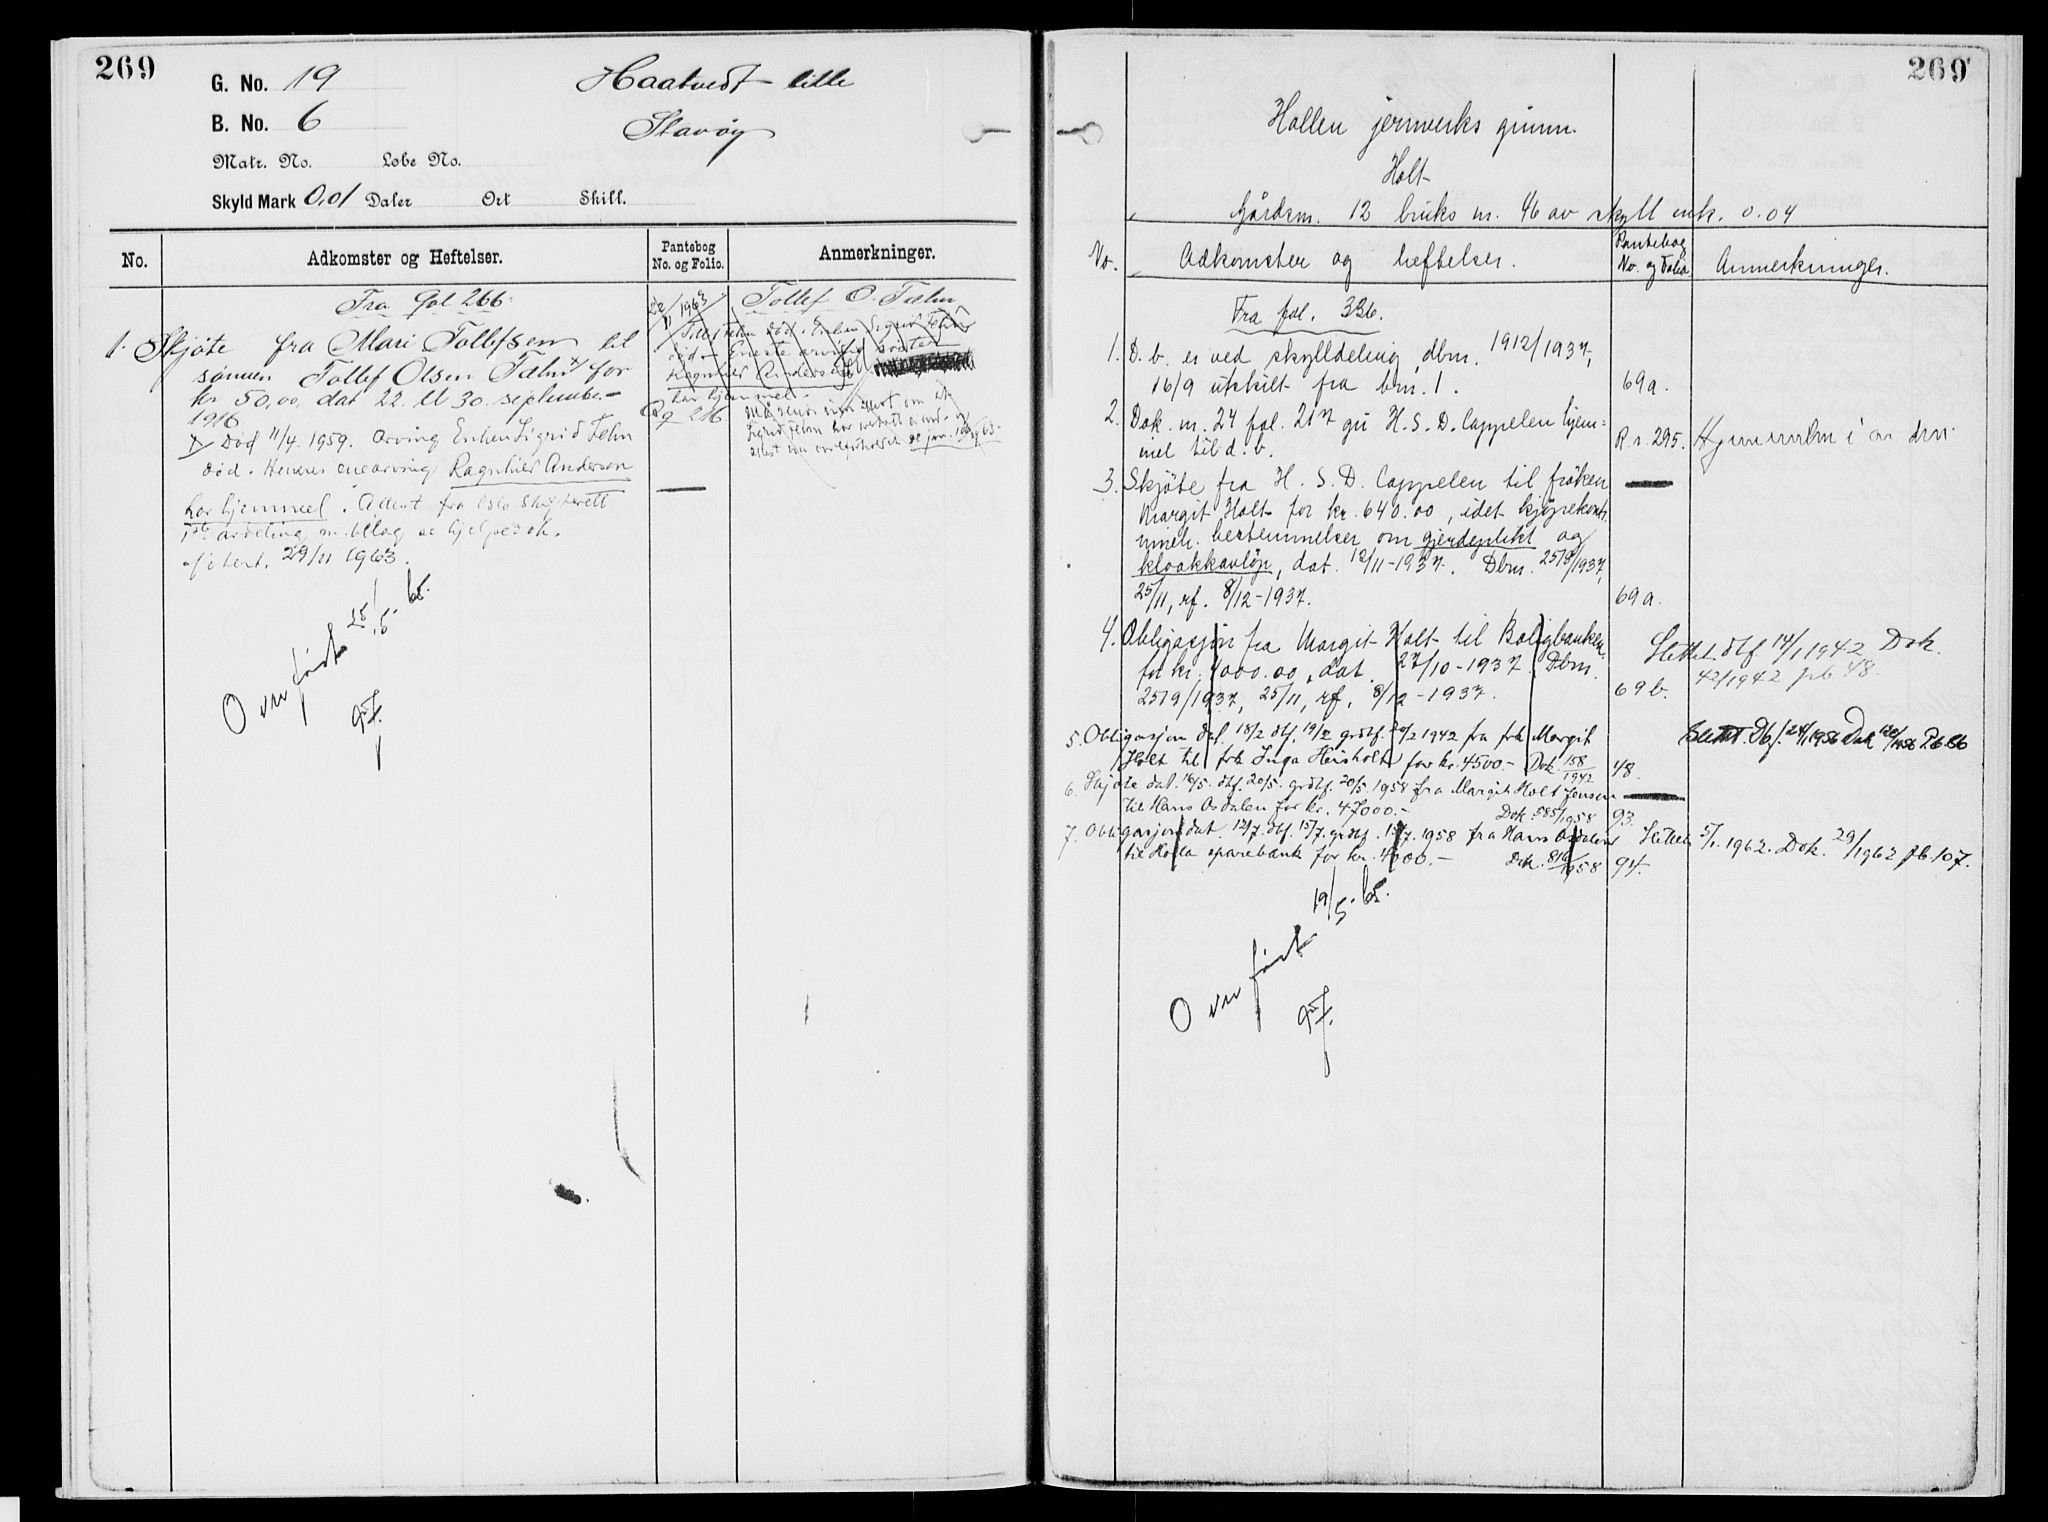 269
G. No. 19
Haatvedt lille
B. No. 6
Stavøy
Matr. No. Løbe No.
Skyld Mark 0,01 Daler Ort Skill.
No.
Adkomster og Heftelser.
Pantebog No. og Folio.
Anmerkninger.
Fra fol 266.
1. Skjøte fra Mari Tollefsen til
sønnen Tollef Olsen Tehn x for
kr 50,00, dat 22. tl 30. september
1916
x Død 11/4. 1959. Arving Enken Sigrid Tehn
død. Hennes enearving Ragnhild Anderson
har hjemmel. Attest fra Oslo skifterett
avdeling m. bilag se hjelpedok.
29/11 1963.
Overført 25/5. 65.
22/11 1963
Q 9 216
Tollef O. Tehn
Tollef Tehn død. Enken Sigrid Tehn
død. Eneste arving søster
Ragnhild Anderson
har hjemmel.
269
Hollen jernverks grunn.
Holt
Gårdsnr. 12 bruks nr. 46 av skyll mk. 0.04
No.
Adkomster og heftelser.
Pantebog
No. og Folio
Anmerkninger.
Fra fol. 336.
1. D. b. er ved skylldeling dbnr. 1912/1937,
16/9 utskilt fra bnr. 1.
69a.
2. Dok. nr. 24 fol. 217 gir H. S. D. Cappelen hjem=
mel til d. b.
R. s. 295.
3. Skjøte fra H. S. D. Cappelen til frøken
Margit Holt for kr. 640.00, idet kjøpekontr.
inneh. bestemmelser om gjerdeplikt og
kloakkavløp, dat. 12/11-1937. Dbnr. 2518/1937,
25/11, rf. 8/12-1937.
69a.
4. Obligasjon fra Margit Holt til Boligbanken
for kr. 4000.00, dat. 27/10-1937. Dbnr.
2519/1937, 25/11, rf. 8/12-1937.
69b.
Slettet dbf 14/1 1942 Dok.
42/1942 pb 48.
5. Obligasjon dat 18/2 dbf. 19/2 grdbf. 20/2 1942 fra frk Margit
Holt til frk Inga Heisholt for kr. 4500.- Dok 158/1942
48.
6. Skjøte dat. 16/5. dbf. 20/5. grdbf. 20/5. 1958 fra Margit Holt Jensen
til Hans Asdalen for kr. 47000.- Dok. 585/1958
93.
7. Obligasjon dat. 12/7. dbf. 15/7. grdbf. 15/7. 1958 fra Hans Asdalen
til Holla sparebank for kr. 4000.- Dok. 816/1958
94.
Slettet 5/1. 1962. Dok. 29/1962 pb. 107.
Overført 19/5. 65.